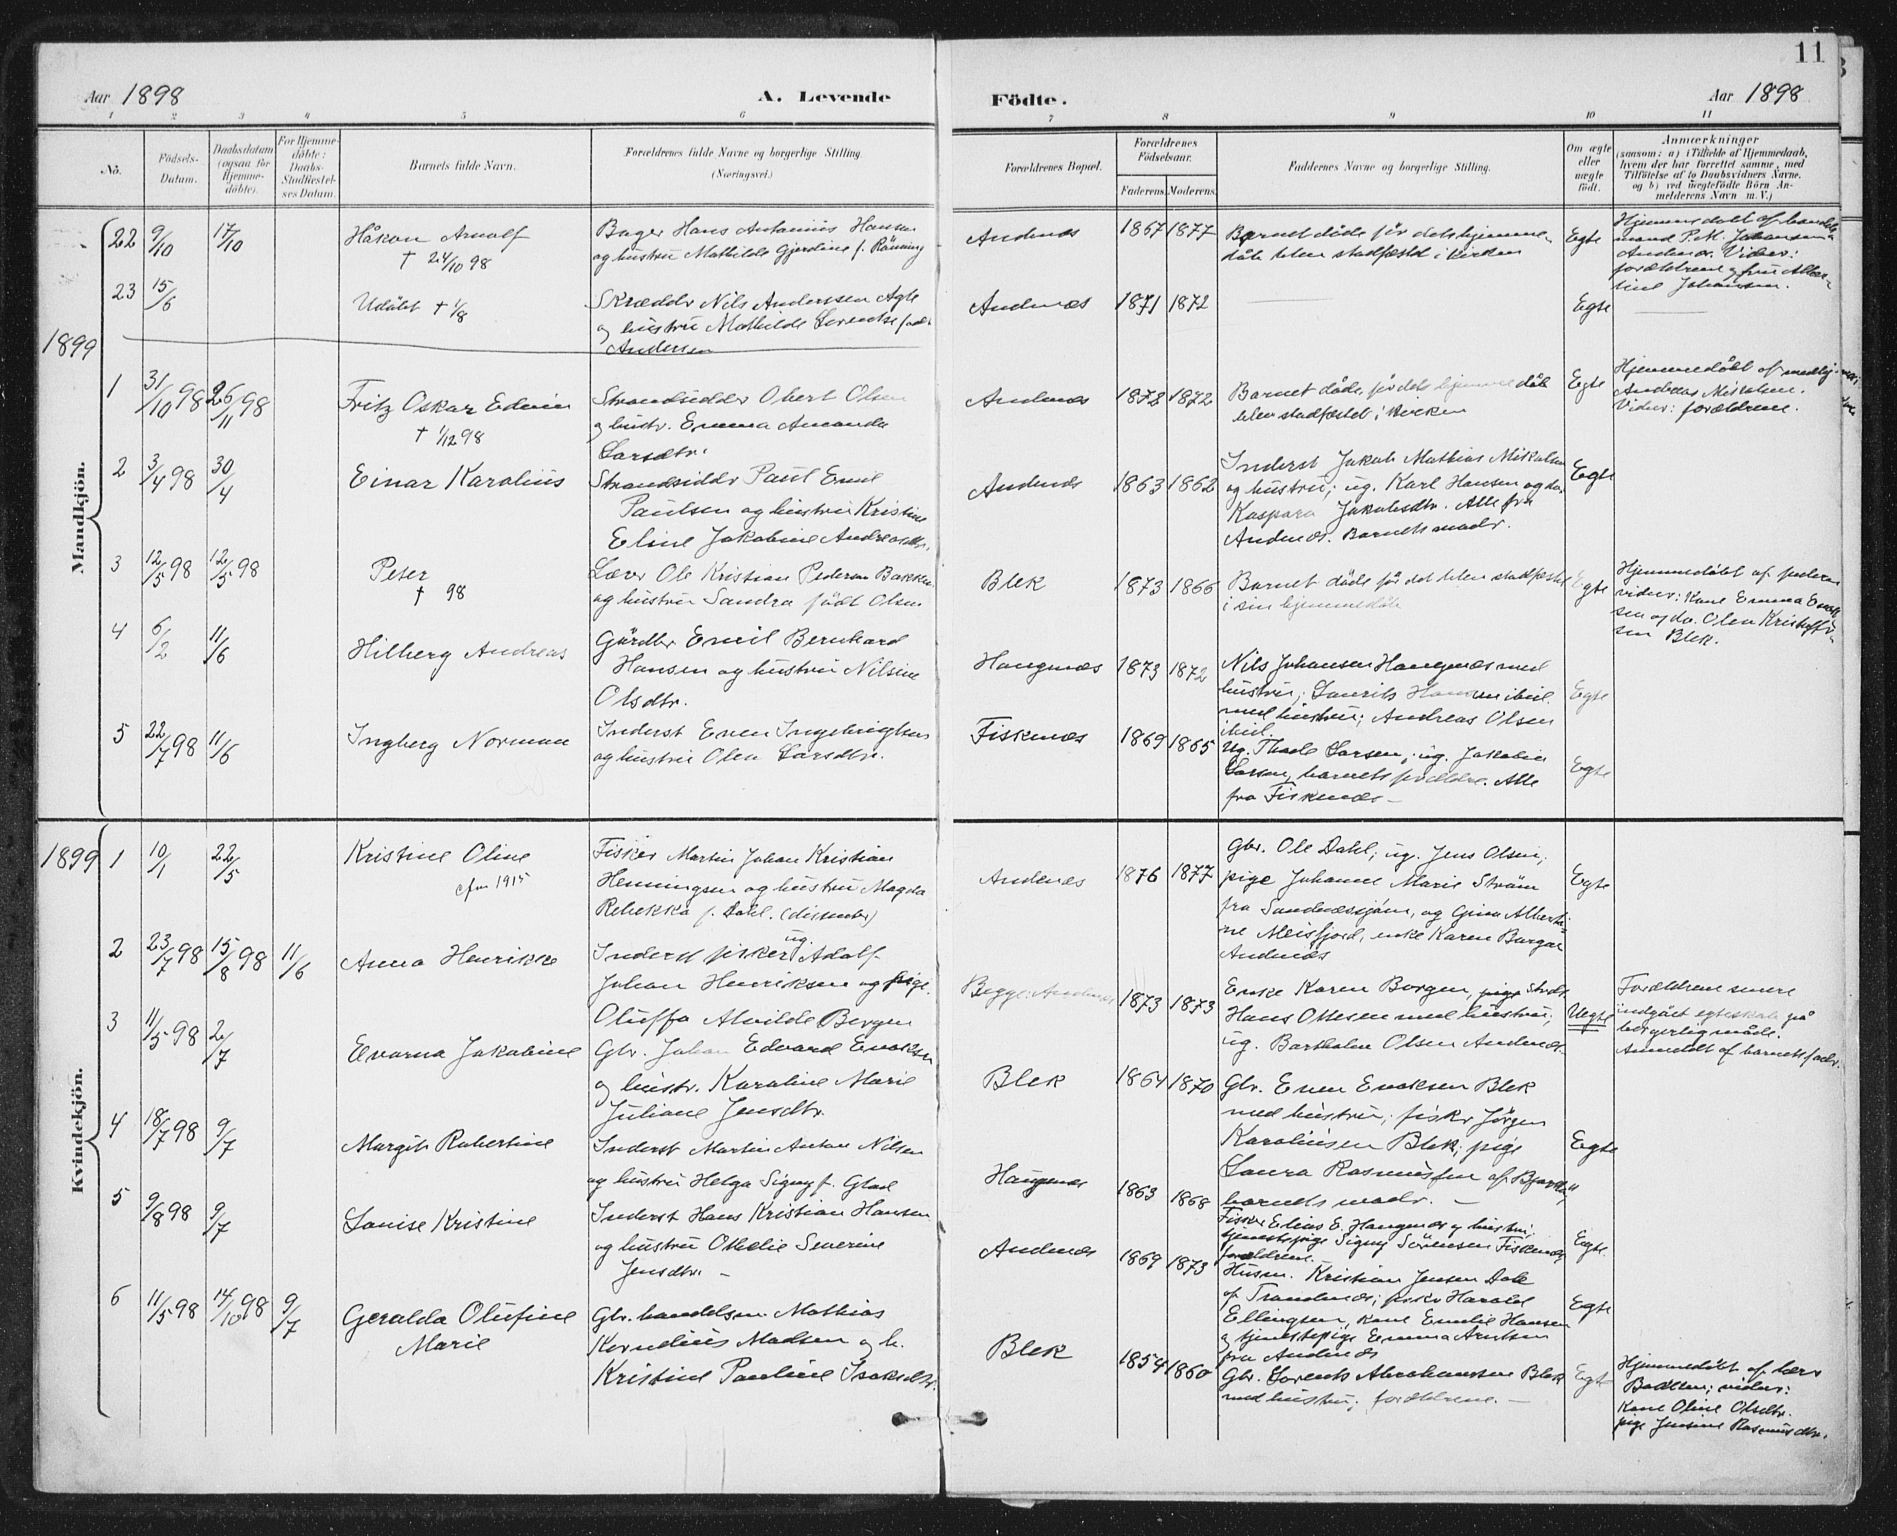 11
Aar 1898
A. Levende
Födte.
Aar 1898
1 2 3 4 5 6 7 8 9 10 11
No.
Födsels-
Datum.
Daabsdatum
(ogsaa for
Hjemme-
döbte).
For Hjemme-
döbte:
Daabs-
Stadfæstel-
ses Datum.
Barnets fulde Navn.
Forældrenes fulde Navne og borgerlige Stilling
(Næringsvei.)
Forældrenes Bopæl.
Forældrenes
Födselsaar.
Faderens. Moderens.
Faddernes Navne og borgerlige Stilling.
Om ægte
eller
uægte
födt.
Anmærkninger
(saasom: a) i Tilfælde af Hjemmedaab,
hvem der har forrettet samme, med
Tilföielse af to Daabsvidners Navne.
og b) ved uægtefödte Börn An-
melderens Navn m. V.)
Mandkjön.
22 9/10 17/10 Håkon Arnolf
† 24/10 98
Bager Hans Antonius Hansen
og hustru Mathilde Gjerdine f. Rönning
Andenes 1867 1877
Barnet døde før dets hjemme-
dåb blev stadfæstd i kirken
Egte
Hjemmedøbt af handels
mand P. M. Johansen
Andenes. Vidner:
forældrene og fru Alber-
tine Johansen.
23 15/6 Udöbt † 1/8
Skrædder Nils Anderssen Agte
og hustru Mathilde Lorentse født
Andersen
Andenæs 1871 1872
Egte
1899
1 31/10 98 26/11 98 Fritz Oskar Edvin
† 1/12 98
Strandsidder Obert Olsen
og hustr. Emma Amanda
Larsdtr.
Andenæs 1872 1872
Barnet døde før dets hjemmedåb
blev stadfæstet i kirken
Egte
Hjemmedøbt af
Andreas Mikalsen.
Vidner: forældrene.
2 3/4 98 30/4 Einar Karolius
Strandsidder Paul Emil
Paulsen og hustru Kristine
Eline Jakobine Andreasdtr.
Andenæs 1863 1862
Inderst Jakob Mathias Mikalsen
og hustru; ug. Karl Hansen og
Kaspara Jakobsdtr. Alle fra
Andenæs. Barnets moder.
Egte
3 12/5 98 12/5 98 Peter
† 98
Lærer Ole Kristian Pedersen Bakken
og hustru Sandra født Olsen
Blek 1873 1866
Barnet døde før det blev stadfæstet
i sin hjemmedåb
Egte
Hjemmedøbt af faderen
vidner: Kone Emma Enok-
sen og Olea Kristoffer-
sen Blek.
4 6/2 11/6 Hilberg Andreas
Gårdbr Emil Bernhard
Hansen og hustru Nilsine
Olsdtr.
Haugnæs 1873 1872
Nils Johansen Haugnæs med
hustru; Laurits Hansen ibid.
med hustru; Andreas Olsen
ibid.
Egte
5 22/7 98 11/6 Ingberg Norman
Inderst Even Ingebrigtsen
og hustru Olea Larsdtr.
Fiskenæs 1869 1865
Ug. Larsen; ug. Jakobine
Larsen, barnets forældre. Alle
fra Fiskenæs –
Egte
Kvindekjön.
1899
1 10/1 22/5 Kristine Oline
cfm 1915
Fisker Martin Johan Kristian
Henningsen og hustru Magda
Rebekka f. Dahl. (dissenter)
Andenæs 1876 1877
Gbr. Ole Dahl; ug. Jens Olsen;
pige Johanne Marie Ström
fra Sandnessjøen, og Gina Alberti-
ne Meisfjord, enke Karen Borgen
Andenæs
Egte
2 23/7 98 15/8 98 11/6 Anna Henrikke
Inderst fisker ug. Adolf
Johan Henriksen og pige
Oluffa Alvilde Borgen
Begge: Andenæs 1873 1873
Enke Karen Borgen, Strds.
Hans Ottesen med hustru;
ug. Bartholm Olsen Andenæs.
Uegte
Forældrene senere
indgået egteskab på
borgerlig måde.
Anmeldt af barnets fader.
3 11/5 98 2/7 Evarna Jakobine
Gbr. Johan Edvard Enoksen
og hustr. Karoline Marie
Juliane Jensdtr.
Blek 1864 1870
Gbr. Even Enoksen Blek
med hustru; fisker Jørgen
Karoliusen Blek; pige
Laura Rasmussen af Bjarkø
barnets moder. –
Egte
4 18/7 98 9/7 Margit Robertine
Inderst Martin Anton Nilsen
og hustru Helga Signy f. Glad
Haugnæs 1863 1868
Fisker Elias E. Haugnæs og hustru;
tjenestepige Signy Sörensen Fiskenæs
forældrene.
Egte.
5 9/8 98 9/7 Louise Kristine
Inderst Hans Kristian Hansen
og hustru Othelie Severine
Jensdtr. –
Andenæs 1869 1873
Husm. Kristian Jensen Dale
af Trandenæs; fisker Harald
Ellingsen, kone Emelie Hansen
og tjenestepige Emma Arntsen
fra Andenæs
Egte
6 11/5 98 14/10 98 9/7 Geralda Olufine
Marie
Gbr. handelsm. Mathias
Kornelius Madsen og h.
Kristine Pauline Isaksdtr.
Blek 1854 1860
Gbr. Lorents Abrahamsen Blek
med hustru; forældrene. –
Egte
Hjemmedøbt af lærer
Bakken; vidner:
Kone Oline Olsdtr.
pige Jensine Rasmusdtr.